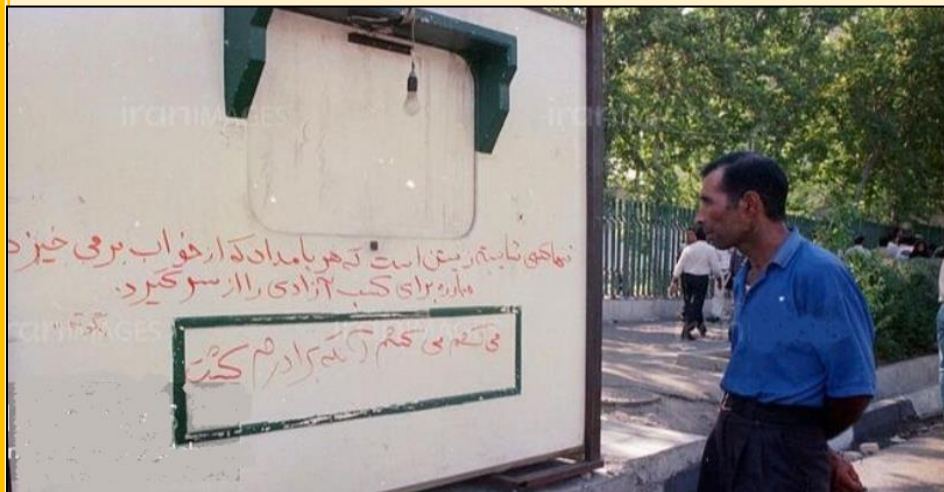 تنها کسی شایسته زیستن است که هر بامداد که از خواب برمی خیزد
مبارزه برای کسب آزادی را از سر گیرد.
گوته
می کشم می کشم آنکه برادرم کشت
iranIMAGES